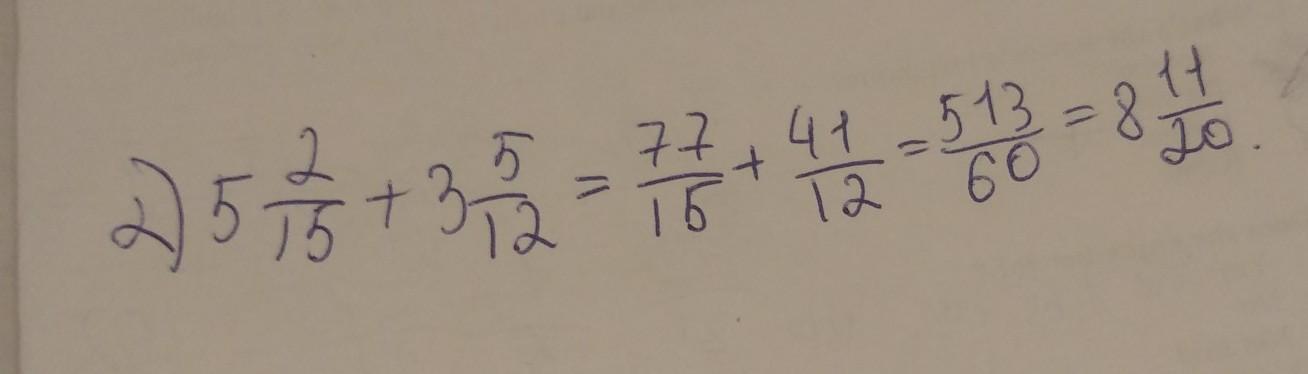 2) 5 2/15 + 3 5/12 = 77/15 + 41/12 = 513/60 = 8 11/20.